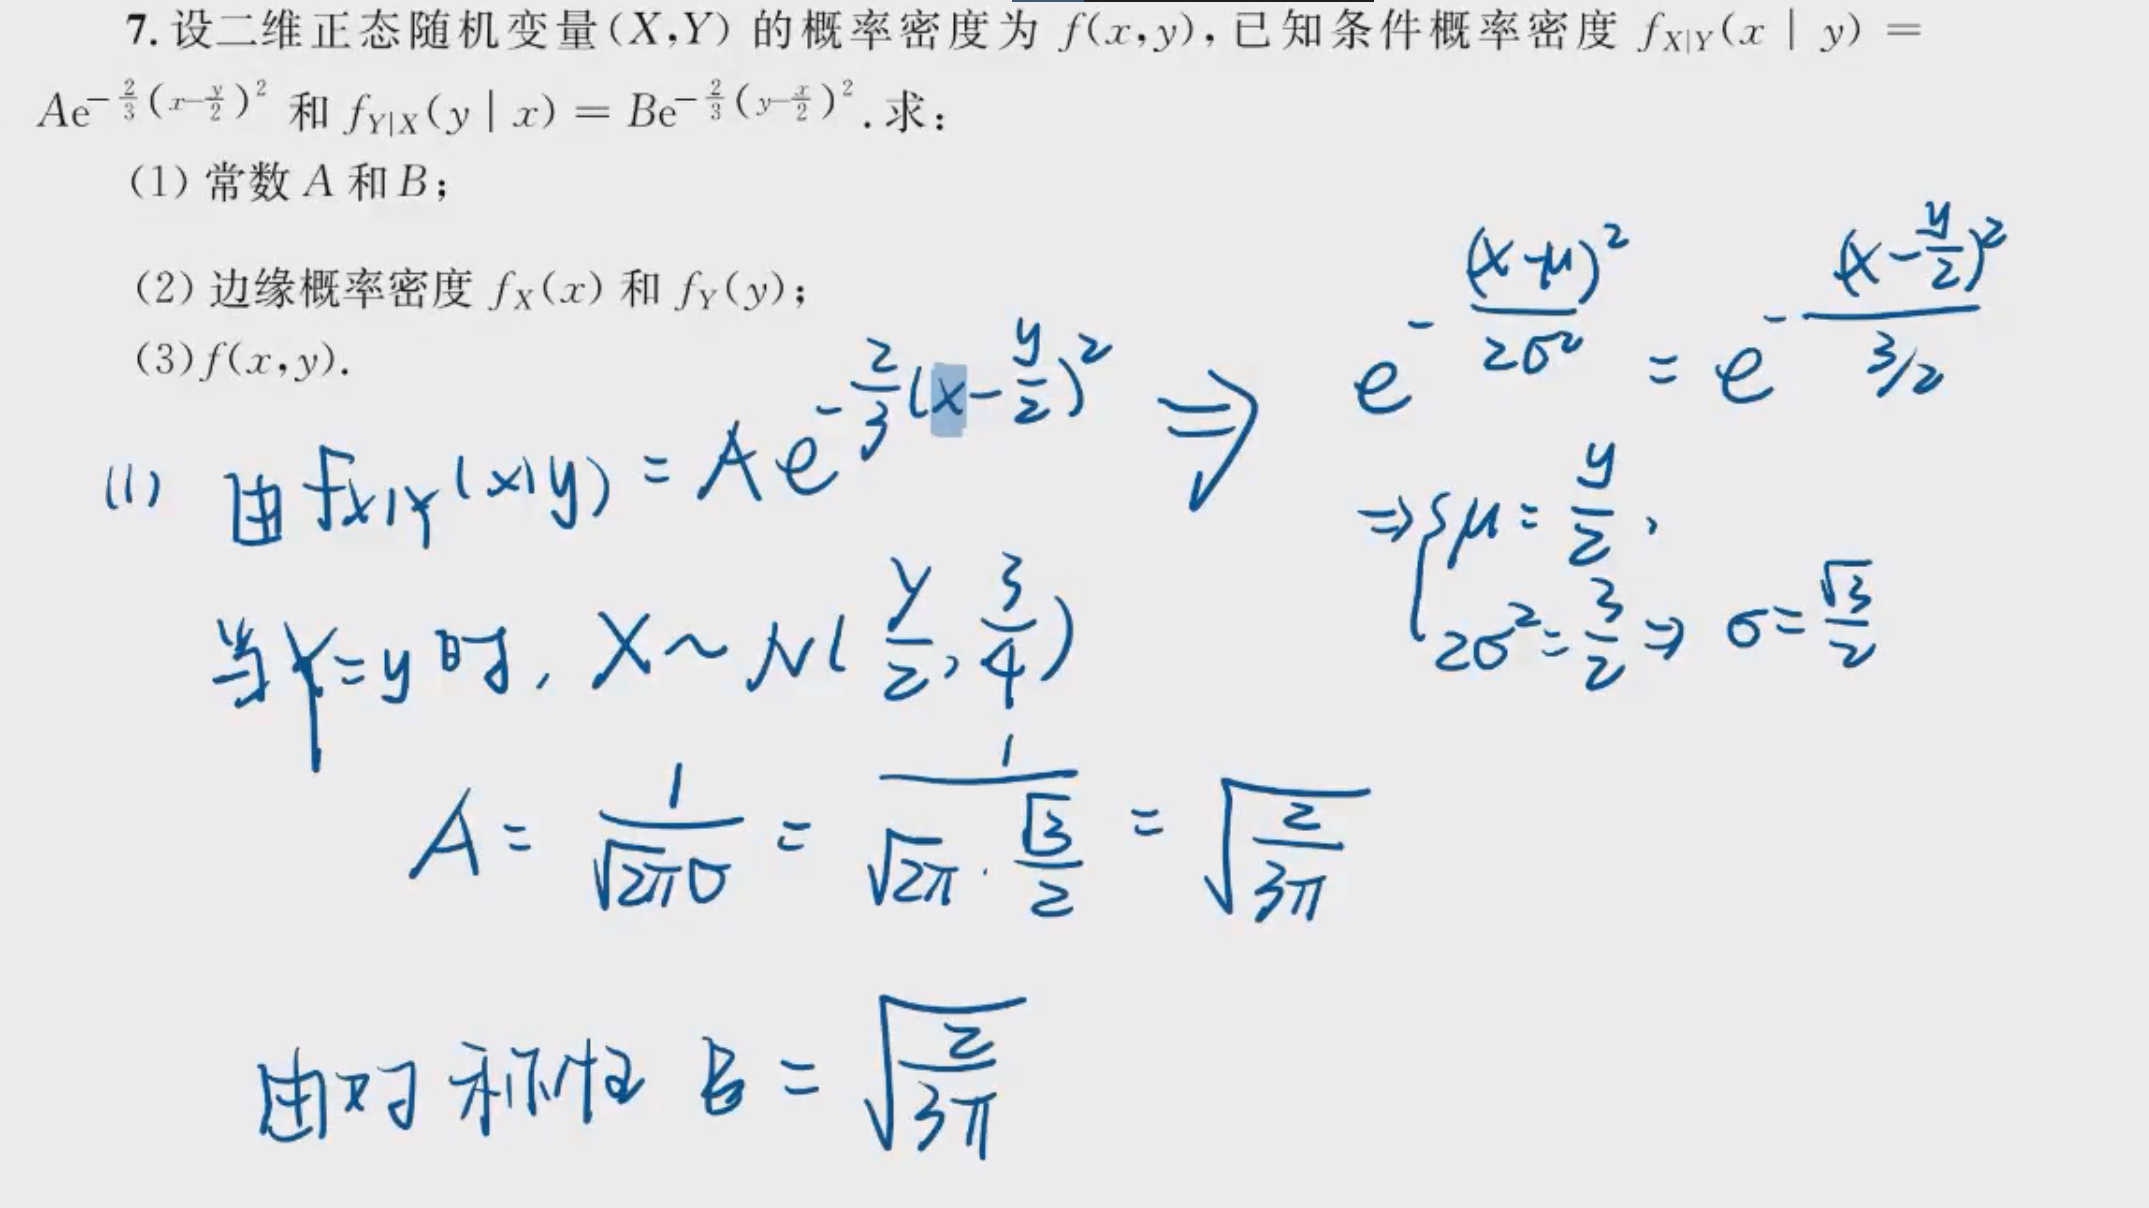 7. 设二维正态随机变量(X,Y) 的概率密度为 f(x,y),已知条件概率密度 f_{X|Y}(x | y) =
Ae^{-\frac{2}{3}(x-\frac{y}{2})^2} 和 f_{Y|X}(y | x) = Be^{-\frac{2}{3}(y-\frac{x}{2})^2}.求:
(1) 常数 A 和 B;
(2) 边缘概率密度 f_X(x) 和 f_Y(y);
(3) f(x,y).
(1) 由 f_{X|Y}(x|y) = A e^{-\frac{2}{3}(x-\frac{y}{2})^2} ⇒ e^{-\frac{(x-μ)^2}{2σ^2}} = e^{-\frac{(x-\frac{y}{2})^2}{3/2}}
⇒ { μ = \frac{y}{2},
2σ^2 = \frac{3}{2} ⇒ σ = \frac{\sqrt{3}}{2}
当Y=y时, X ~ N(\frac{y}{2}, \frac{3}{4})
A = \frac{1}{\sqrt{2π}σ} = \frac{1}{\sqrt{2π}·\frac{\sqrt{3}}{2}} = \sqrt{\frac{2}{3π}}
由对称性 B = \sqrt{\frac{2}{3π}}